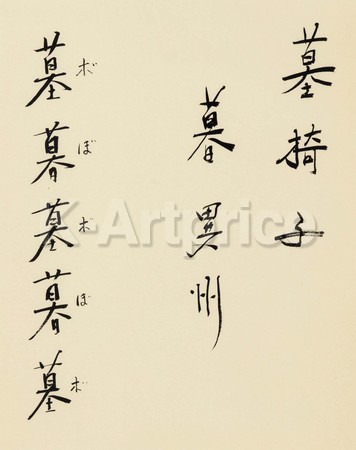 墓椅子
暮異州
ボぼボぼボ
墓暮墓暮墓
K-Artprice